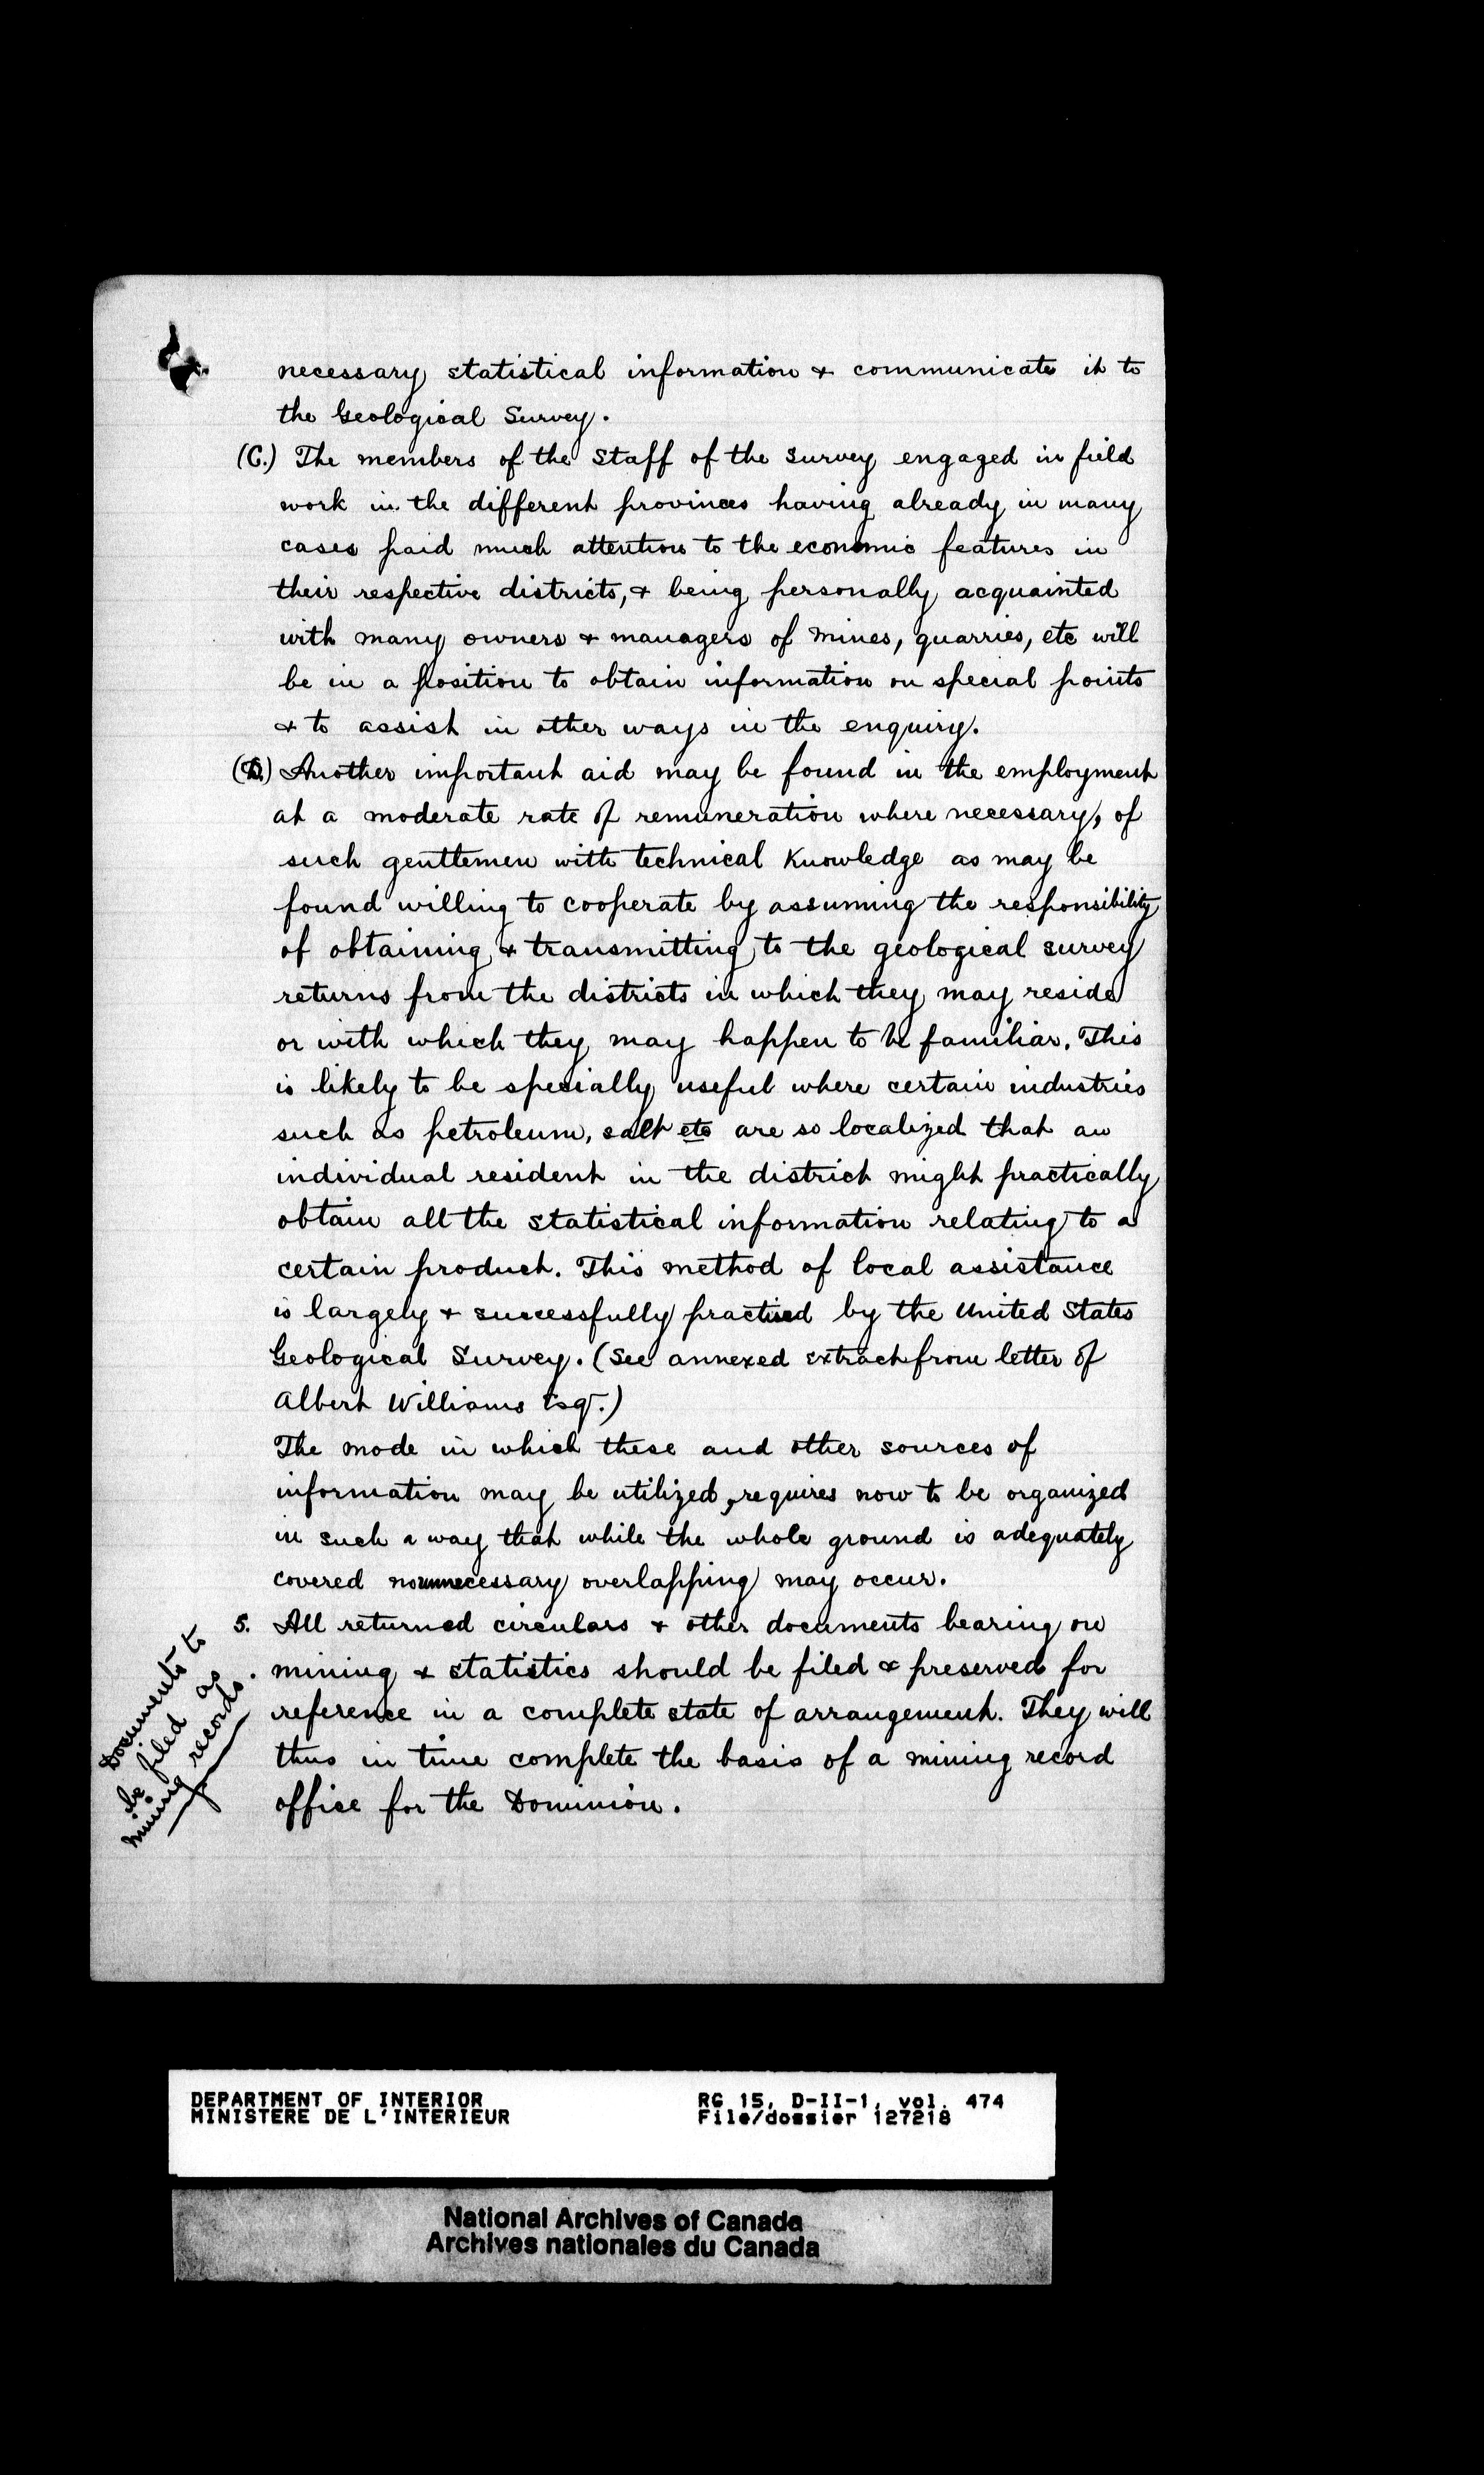 necessary statistical information & communicate it to
the Geological Survey.
(C.) The members of the Staff of the Survey engaged in field
work in the different provinces having already in many
cases paid much attention to the economic features in
their respective districts, & being personally acquainted
with many owners & managers of mines, quarries, etc will
be in a position to obtain information on special points
& to assist in other ways in the enquiry.
(D.) Another important aid may be found in the employment
at a moderate rate of remuneration where necessary, of
such gentlemen with technical Knowledge as may be
found willing to cooperate by assuming the responsibility
of obtaining & transmitting to the geological survey
returns from the districts in which they may reside
or with which they may happen to be familiar. This
is likely to be specially useful where certain industries
such as petroleum, salt etc are so localized that an
individual resident in the district might practically
obtain all the statistical information relating to a
certain product. This method of local assistance
is largely & successfully practised by the United States
Geological Survey. (See annexed extract from letter of
Albert Williams Esq.)
The mode in which these and other sources of
information may be utilized, requires now to be organized
in such a way that while the whole ground is adequately
covered no unnecessary overlapping may occur.
5. All returned circulars & other documents bearing on
mining & statistics should be filed & preserved for
reference in a complete state of arrangement. They will
thus in time complete the basis of a mining record
office for the Dominion.
Documents to
be filed as
mining records.
DEPARTMENT OF INTERIOR
MINISTERE DE L'INTERIEUR
RG 15, D-II-1, vol. 474
File/dossier 127218
National Archives of Canada
Archives nationales du Canada